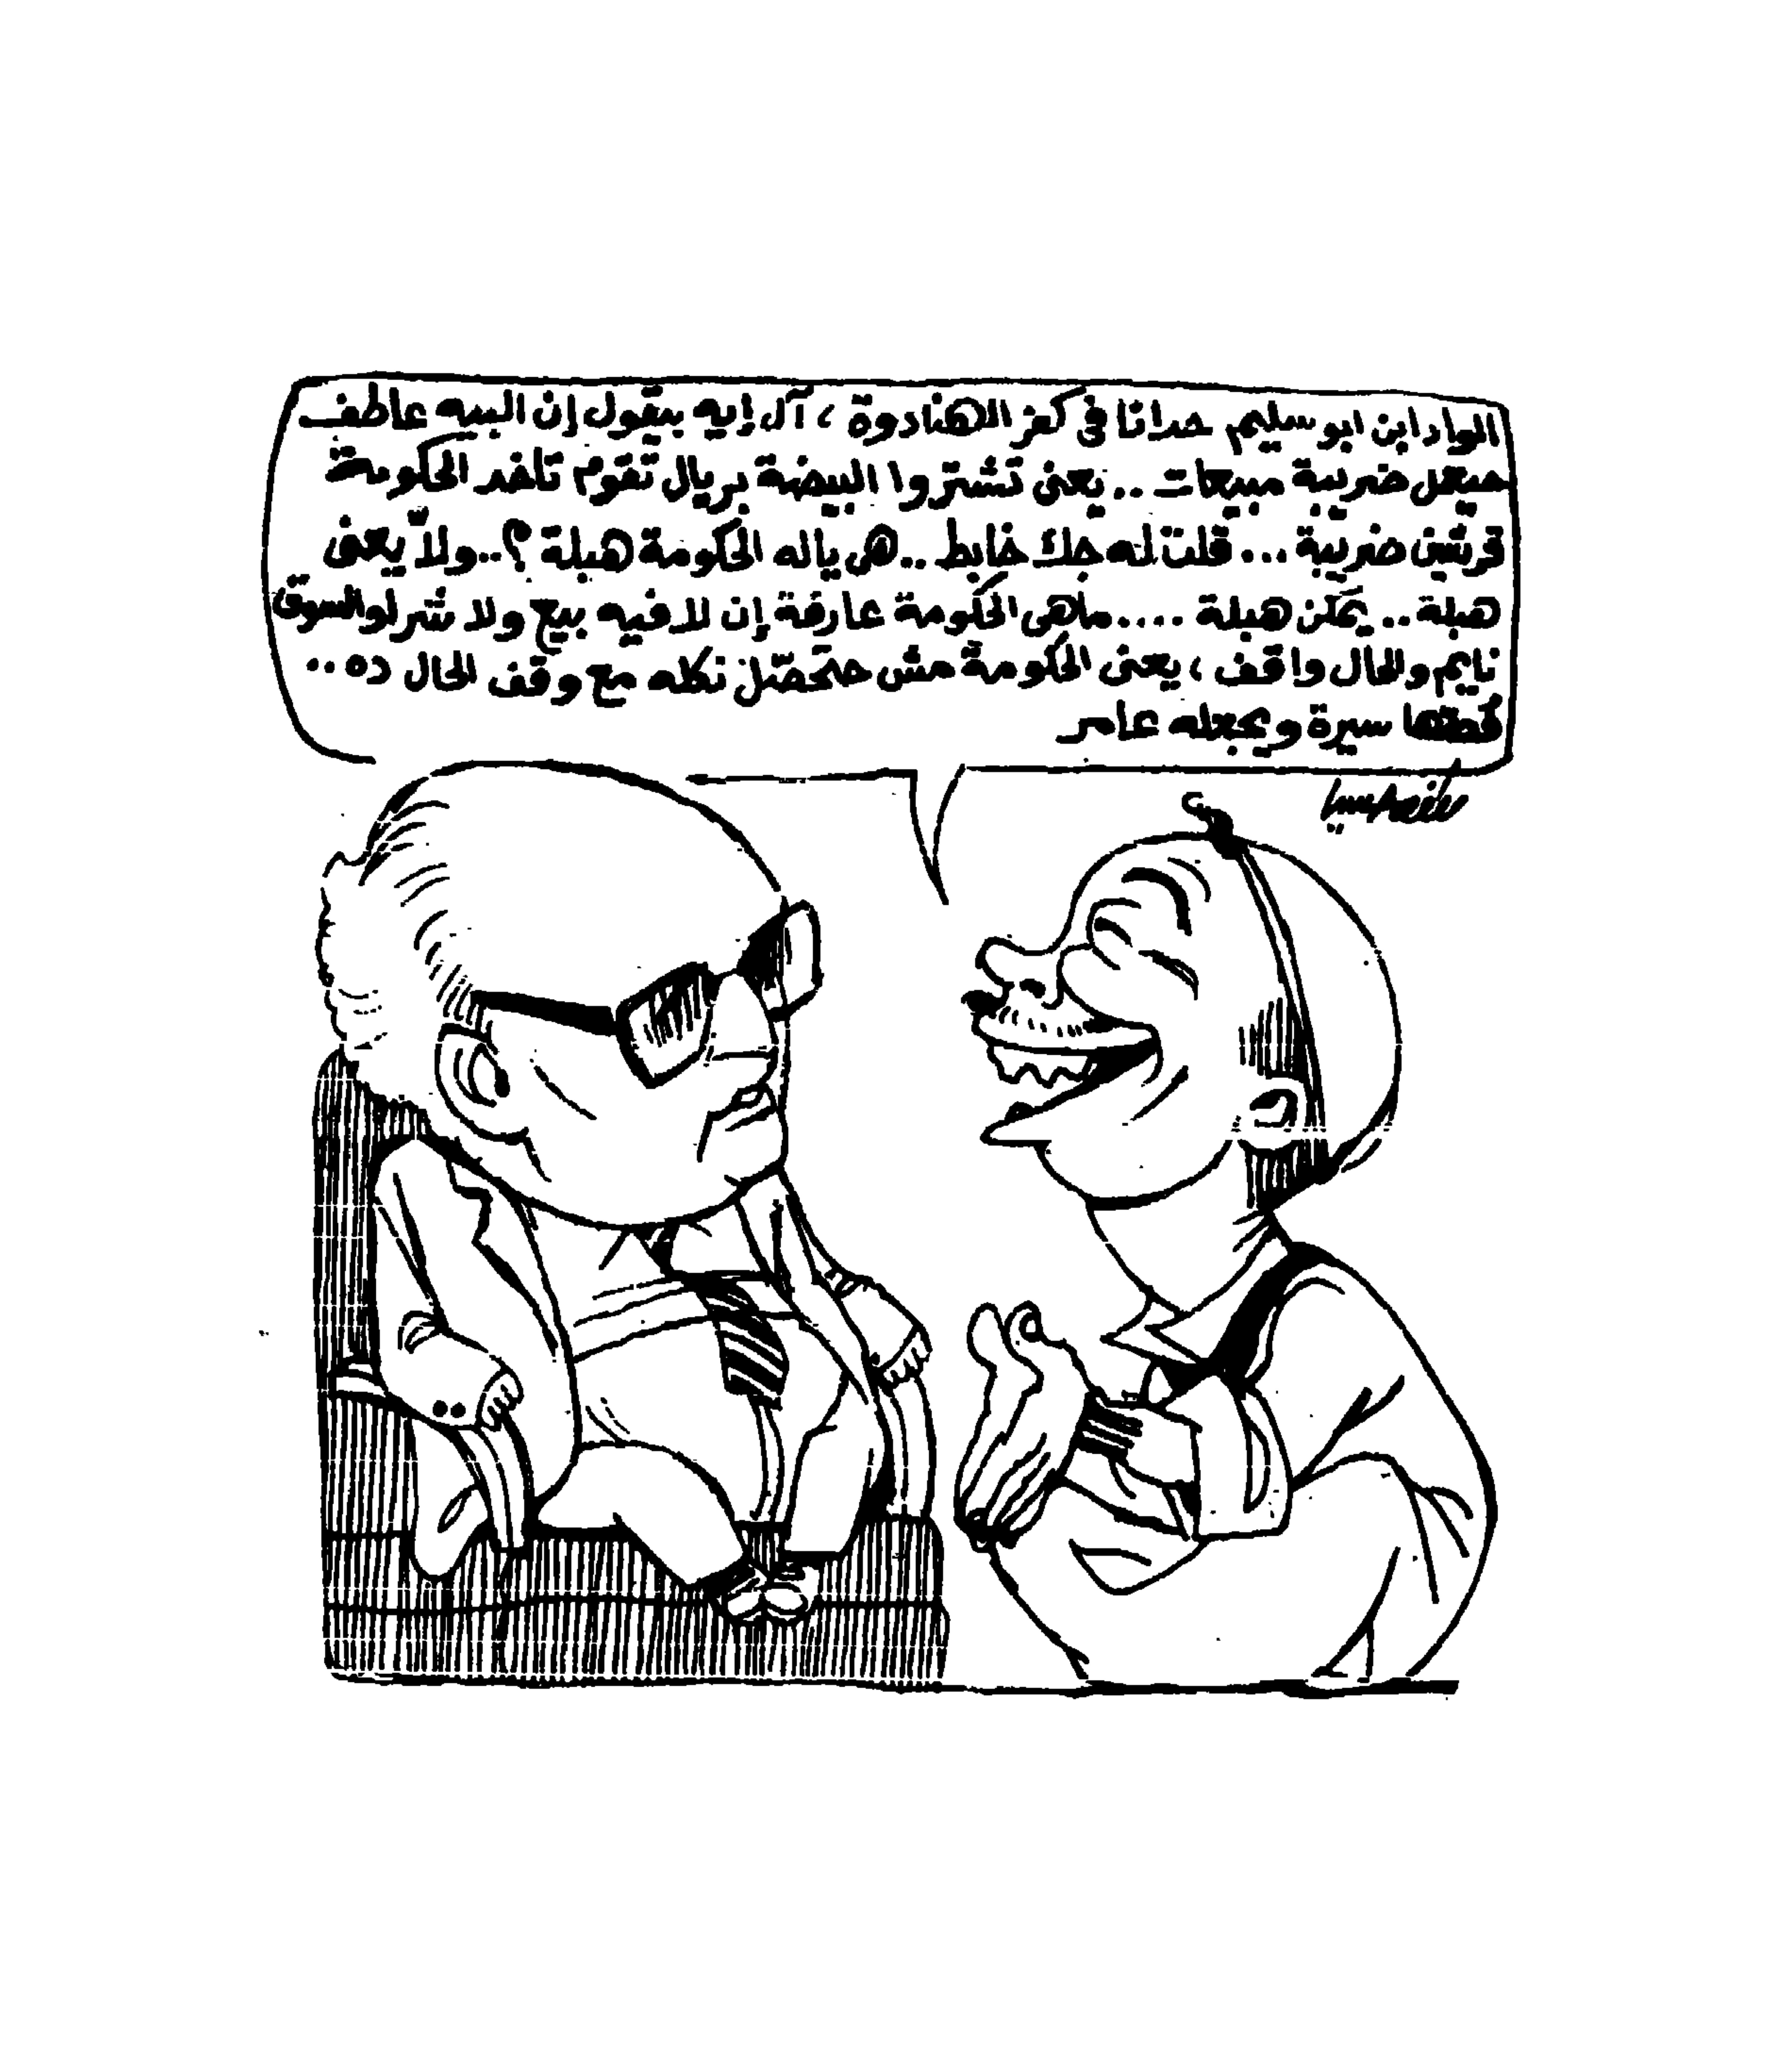 الواد ابن ابو سليم حدانا فى كفر الهنادوة ، آل إيه بيقول إن البيه عاطف
حيعمل ضريبة مبيعات .. يعنى تشتروا البيضة بريال تقوم تاخد الحكومة
قرشين ضريبة ... قلت له جك خابط .. هى ياله الحكومة هبلة ؟ .. ولاّ يعنى
هبلة .. يمكن هبلة .... ماهى الحكومة عارفة إن لا فيه بيع ولا شرا والسوق
نايم والحال واقف ، يعنى الحكومة مش حتحصّل نكله مع وقف الحال ده ..
سيرة ويجعله عامر